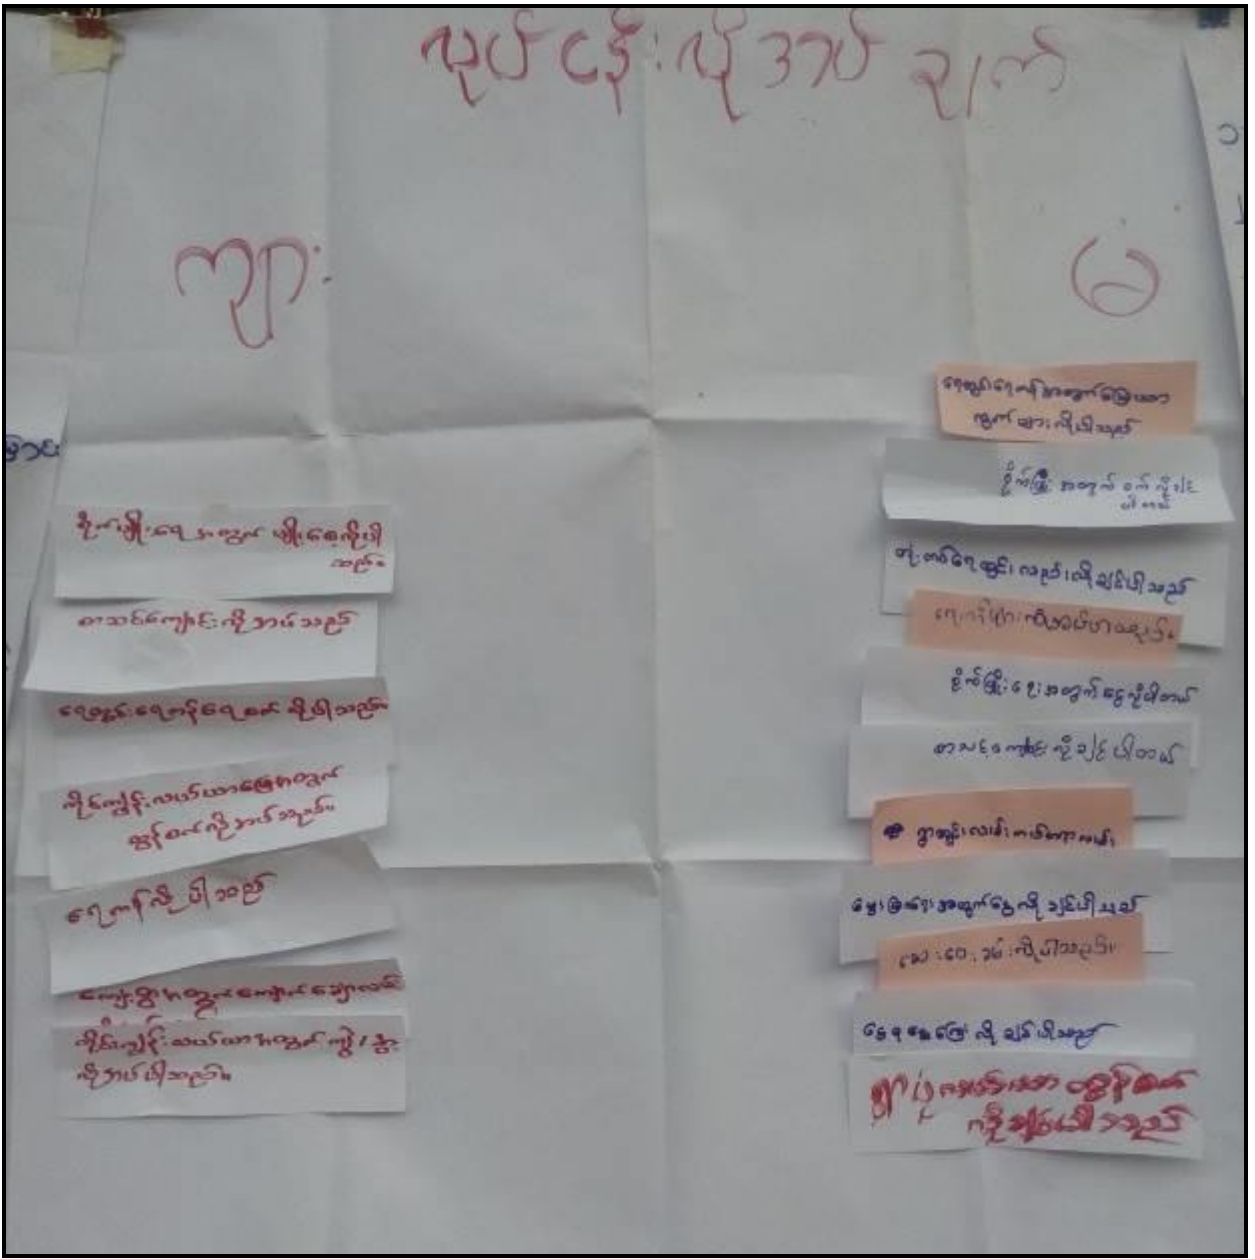 လုပ်ငန်းလိုအပ်ချက်
ကျား
မ
စိုက်ပျိုးရေးအတွက် မျိုးစေ့လိုပါ
သည်။
စာသင်ကျောင်းလိုအပ်သည်
ရေတွင်းရေကန်ရေစက် လိုပါသည်။
ကိုင်းကျွန်းလယ်ယာမြေအတွက်
ထွန်စက်လိုအပ်သည်။
ရေကန်လိုပါသည်
ကျေးရွာအတွက်ကျောက်ချောလမ်း
ကိုင်းကျွန်းလယ်ယာအတွက် ကျွဲ၊ နွား
လိုအပ်ပါသည်။
ရေတွင်းရေကန်အတွက်မြေယာ
ကွက်များလိုပါသည်
စိုက်ပြိုးအတွက် ဝက်လိုချင်
ပါတယ်
ရေတွင်းလည်းလိုချင်ပါသည်
စိုက်ပြိုးရေးအတွက်ငွေလိုပါတယ်
စာသင်ကျောင်းလိုချင်ပါတယ်
ရွာတွင်းလမ်း
မွေးမြူရေးအတွက်ငွေလိုချင်ပါသည်
ဆေးပေးခန်းလိုပါသည်။
လိုချင်ပါသည်
ထွန်စက်
လိုချင်ပါသည်